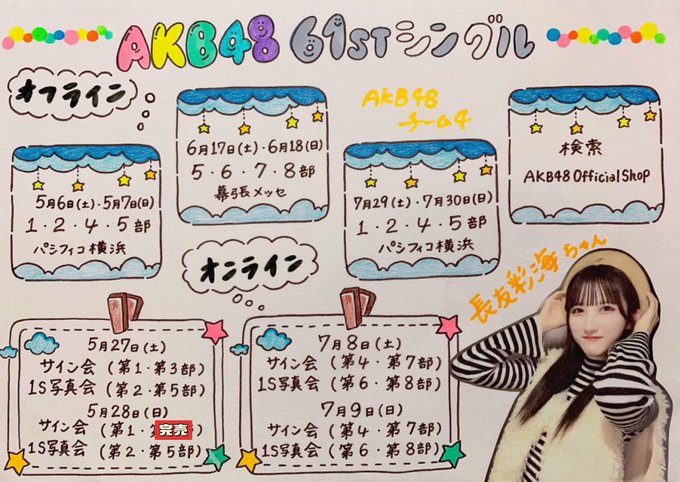 AKB48 61STシングル
オフライン
5月6日(土)・5月7日(日)
1・2・4・5部
パシフィコ横浜
6月17日(土)・6月18日(日)
5・6・7・8部
幕張メッセ
AKB48
チーム4
7月29(土)・7月30日(日)
1・2・4・5部
パシフィコ横浜
検索
AKB48 OfficialShop
オンライン
長友彩海ちゃん
5月27日(土)
サイン会(第1・第3部)
1S写真会(第2・第5部)
5月28日(日)
サイン会(第1・第完売)
1S写真会(第2・第5部)
7月8日(土)
サイン会(第4・第7部)
1S写真会(第6・第8部)
7月9日(日)
サイン会(第4・第7部)
1S写真会(第6・第8部)